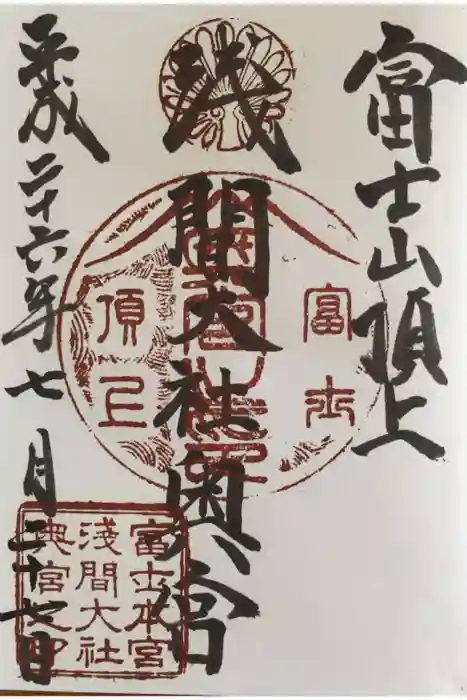 富士山頂上
浅間大社奥宮
平成二十六年七月二十七日
富士
頂上
富士本宮
淺間大社
奥宮之印